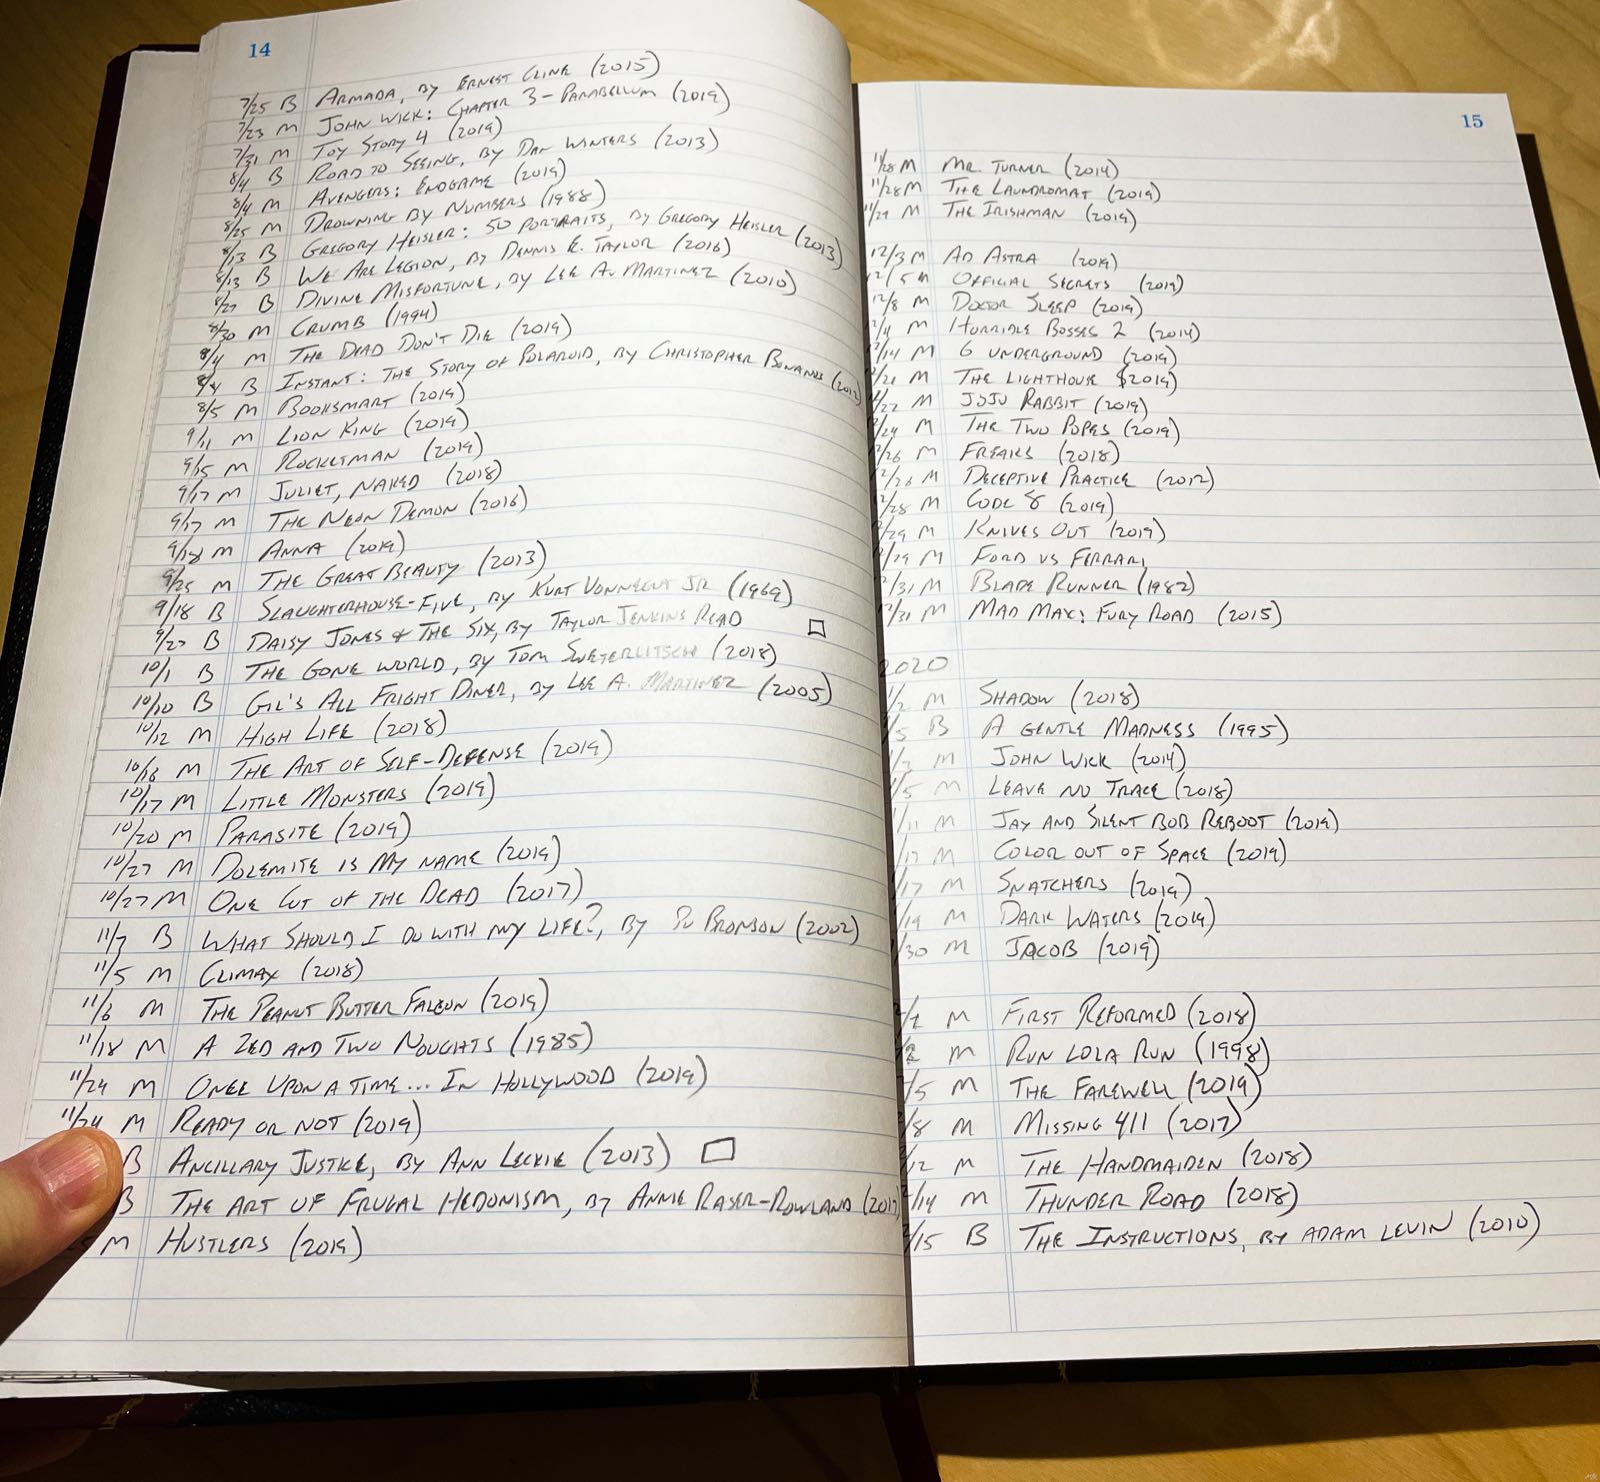 14
7/25 B ARMADA, BY ERNEST CLINE (2015)
7/23 M JOHN WICK: CHAPTER 3 - PARABELLUM (2019)
7/31 M TOY STORY 4 (2019)
8/4 B ROAD TO SEEING, BY DAN WINTERS (2013)
8/4 M AVENGERS: ENDGAME (2019)
8/25 M DROWNING BY NUMBERS (1988)
8/13 B GREGORY HEISLER: 50 PORTRAITS, BY GREGORY HEISLER (2013)
8/13 B WE ARE LEGION, BY DENNIS E. TAYLOR (2016)
8/27 B DIVINE MISFORTUNE, BY LEE A. MARTINEZ (2010)
8/30 M CRUMB (1994)
8/4 M THE DEAD DON'T DIE (2019)
8/4 B INSTANT: THE STORY OF POLAROID, BY CHRISTOPHER BONANOS (2012)
8/5 M BOOKSMART (2019)
9/11 M LION KING (2019)
9/15 M ROCKETMAN (2019)
9/17 M JULIET, NAKED (2018)
9/17 M THE NEON DEMON (2016)
9/18 M ANNA (2019)
9/25 M THE GREAT BEAUTY (2013)
9/18 B SLAUGHTERHOUSE-FIVE, BY KURT VONNEGUT JR (1969)
9/27 B DAISY JONES & THE SIX, BY TAYLOR JENKINS READ
10/1 B THE GONE WORLD, BY TOM SWETERLITSCH (2018)
10/10 B GIL'S ALL FRIGHT DINER, BY LEE A. MARTINEZ (2005)
10/12 M HIGH LIFE (2018)
10/16 M THE ART OF SELF-DEFENSE (2019)
10/17 M LITTLE MONSTERS (2019)
10/20 M PARASITE (2019)
10/27 M DOLEMITE IS MY NAME (2019)
10/27 M ONE CUT OF THE DEAD (2017)
11/7 B WHAT SHOULD I DO WITH MY LIFE?, BY PO BRONSON (2002)
11/5 M CLIMAX (2018)
11/6 M THE PEANUT BUTTER FALCON (2019)
11/18 M A ZED AND TWO NOUGHTS (1985)
11/24 M ONCE UPON A TIME... IN HOLLYWOOD (2019)
11/24 M READY OR NOT (2019)
B ANCILLARY JUSTICE, BY ANN LECKIE (2013)
B THE ART OF FRUGAL HEDONISM, BY ANNIE RASER-ROWLAND (2017)
M HUSTLERS (2019)
15
11/28 M MR. TURNER (2014)
11/28 M THE LAUNDROMAT (2019)
11/29 M THE IRISHMAN (2019)
12/3 M AD ASTRA (2019)
12/5 M OFFICIAL SECRETS (2019)
12/8 M DOCTOR SLEEP (2019)
M HORRIBLE BOSSES 2 (2014)
/14 M 6 UNDERGROUND (2019)
M THE LIGHTHOUSE (2019)
/22 M JOJO RABBIT (2019)
/24 M THE TWO POPES (2019)
/26 M FREAKS (2018)
/26 M DECEPTIVE PRACTICE (2012)
/28 M CODE 8 (2019)
/29 M KNIVES OUT (2019)
/29 M FORD VS FERRARI
/31 M BLADE RUNNER (1982)
/31 M MAD MAX: FURY ROAD (2015)
2020
/2 M SHADOW (2018)
/5 B A GENTLE MADNESS (1995)
M JOHN WICK (2014)
/5 M LEAVE NO TRACE (2018)
/11 M JAY AND SILENT BOB REBOOT (2019)
/17 M COLOR OUT OF SPACE (2019)
/17 M SNATCHERS (2019)
/19 M DARK WATERS (2019)
/30 M JACOB (2019)
M FIRST REFORMED (2018)
M RUN LOLA RUN (1998)
/5 M THE FAREWELL (2019)
/8 M MISSING 411 (2017)
/12 M THE HANDMAIDEN (2018)
/14 M THUNDER ROAD (2018)
/15 B THE INSTRUCTIONS, BY ADAM LEVIN (2010)